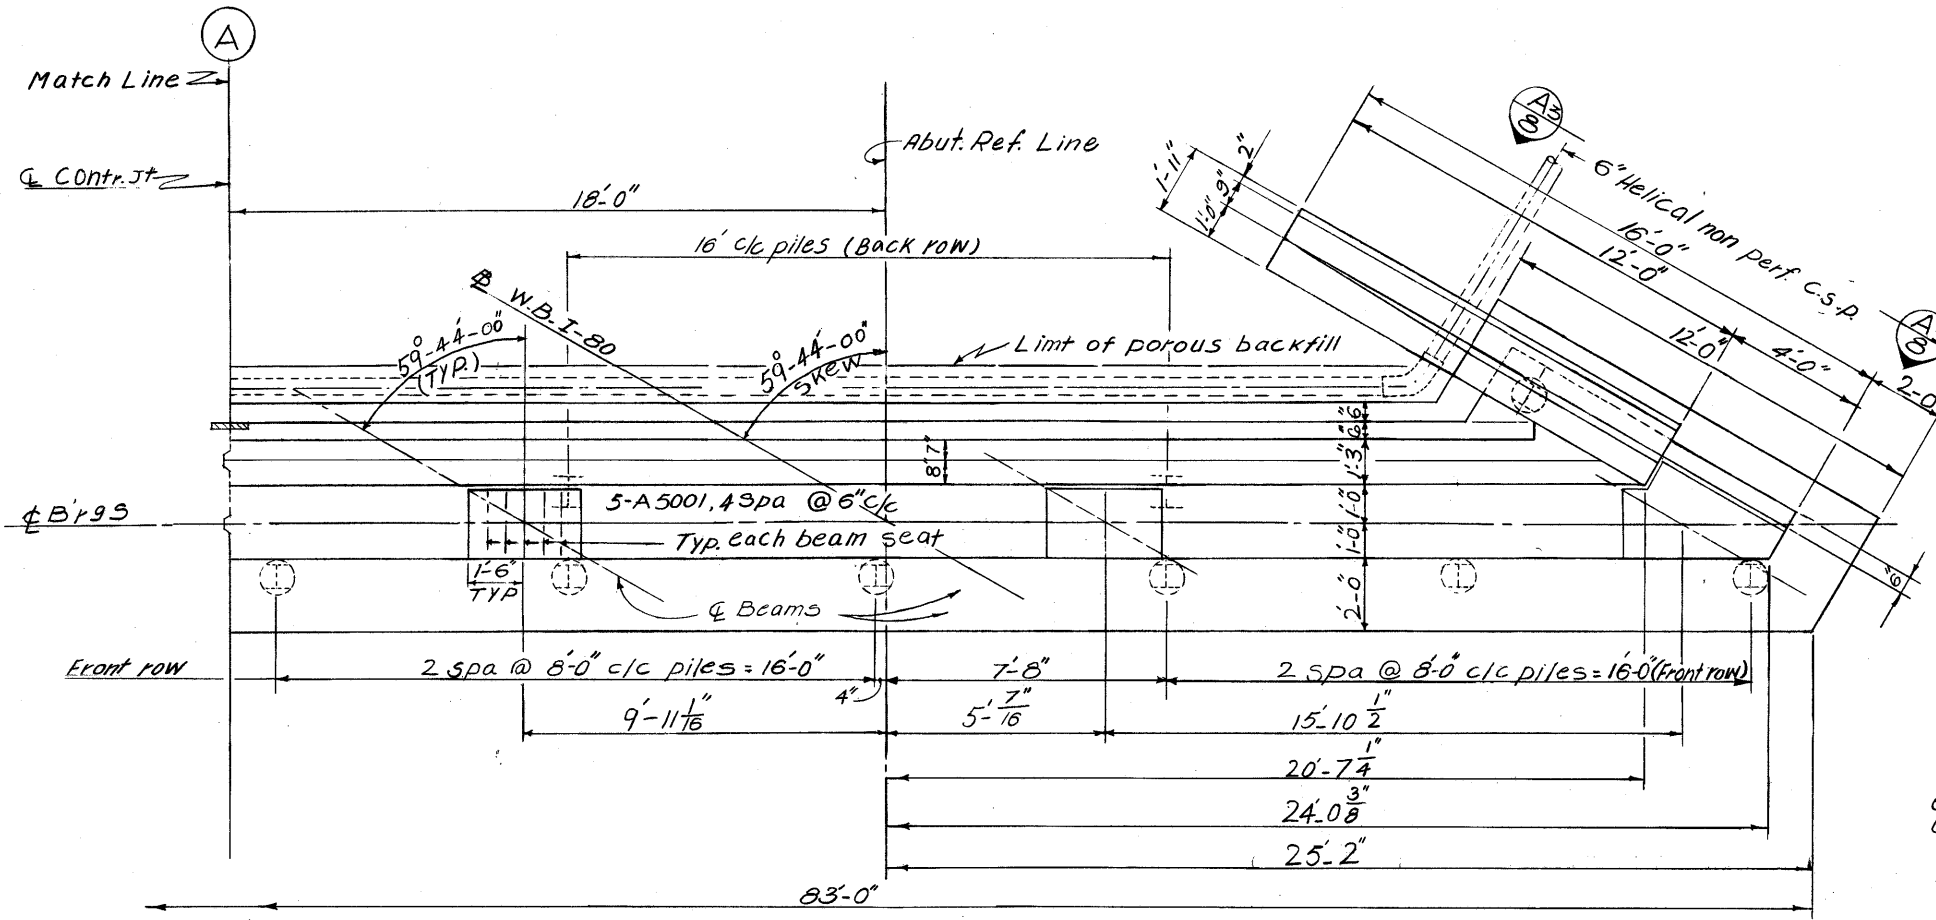 A
Match Line
℄ Contr. Jt
18'-0"
Abut. Ref. Line
16' c/c piles (Back row)
℄ W.B. I-80
59°-44'-00"
(TYP.)
59°-44'-00"
SKEW
Limt of porous backfill
1'-11"
2"
9"
1'-0"
A3
8
6" Helical non perf. C.S.P.
16'-0"
12'-0"
12'-0"
4'-0"
2'-0
A
8
6"
6"
1'-3"
7"
8"
1'-0"
1'-0"
2'-0"
℄ Br'gs
5-A5001, 4 Spa @ 6" c/c
Typ. each beam seat
1'-6"
TYP
℄ Beams
6"
Front row
2 spa @ 8'-0" c/c piles = 16'-0"
4"
7'-8"
2 spa @ 8'-0" c/c piles = 16'-0" (Front row)
9'-11 1/16"
5'- 7/16"
15'-10 1/2"
20'-7 1/4"
24'-0 3/8"
25'-2"
83'-0"